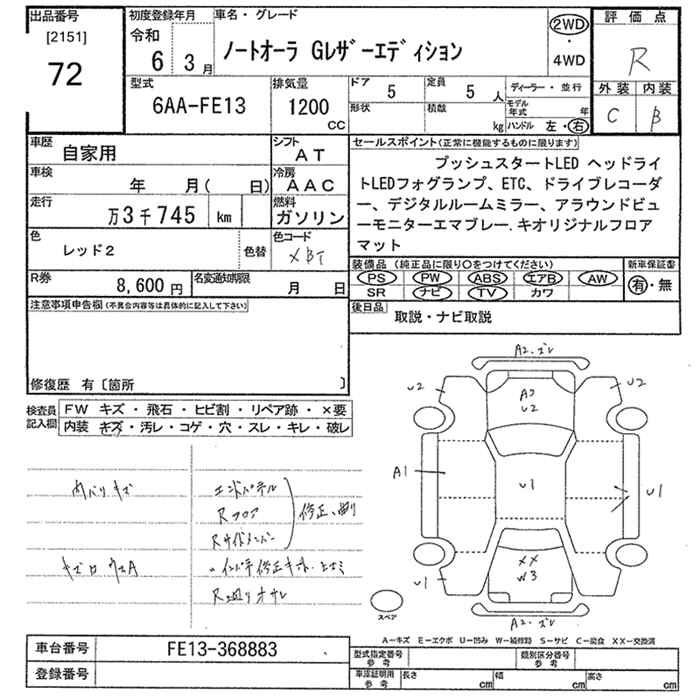 出品番号
[2151]
72
初度登録年月
令和
6 3月
車名・グレード
ノートオーラ Gレザーエディション
2WD
・
4WD
評価点
R
外装 内装
C B
型式
6AA-FE13
排気量
1200
CC
ドア 5
定員 5 人
形状
積載 kg
ディーラー・並行
モデル年式 年
ハンドル 左・右
車歴
自家用
シフト
AT
車検
年 月( 日)
冷房
AAC
走行
万3千745 km
燃料
ガソリン
色
レッド2
色替
色コード
XBT
R券
8,600円
名変通知期限
月 日
セールスポイント(正常に機能するものに限ります)
プッシュスタートLED ヘッドライ
トLEDフォグランプ、ETC、ドライブレコーダ
ー、デジタルルームミラー、アラウンドビュ
ーモニターエマブレー.キオリジナルフロア
マット
装備品 (純正品に限り〇をつけてください)
PS PW ABS エアB AW
SR ナビ TV カワ
新車保証書
有・無
後日品
取説・ナビ取説
注意事項申告欄(不具合内容等は具体的に記入して下さい)
修復歴 有〔箇所 〕
検査員
記入欄
FW キズ・飛石・ヒビ割・リペア跡・×要
内装 キズ・汚レ・コゲ・穴・スレ・キレ・破レ
内バリキズ
エンドパネル
Rフロア
Rサイドメンバー
修正、曲り
キズ
A2.ズレ
U2
U2
A2
U2
A1
U1
U1
XX
W3
U1
A2.ズレ
スペア
A-キズ E-エクボ U-凹み W-補修跡 S-サビ C-腐食 XX-交換済
車台番号
FE13-368883
登録番号
型式指定番号
参考
類別区分番号
参考
車庫証明用
参考
長さ cm
幅 cm
高さ cm